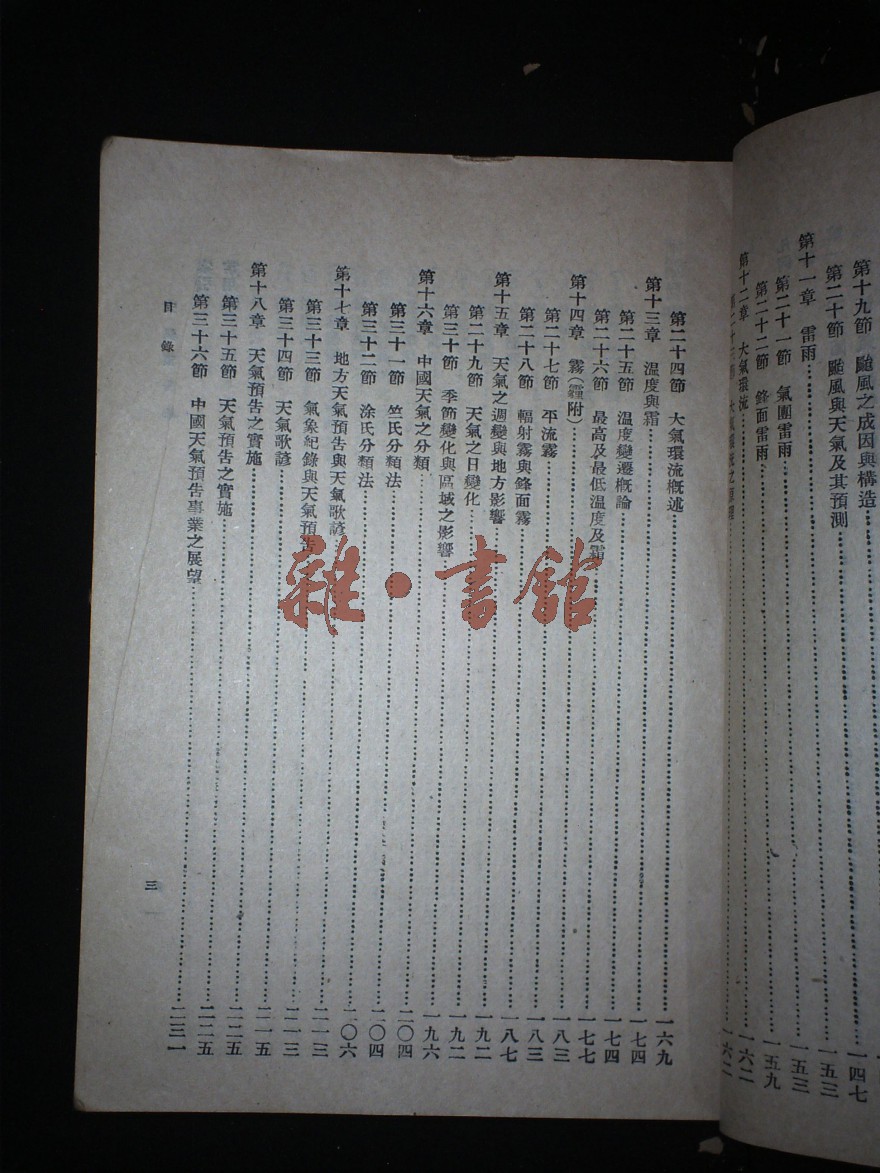 第十九節 颱風之成因與構造
第二十節 颱風與天氣及其預測……一四七
第十一章 雷雨……一五三
第二十一節 氣團雷雨……一五三
第二十二節 鋒面雷雨……一五九
第十二章 大氣環流……一六二
第二十三節 大氣環流之原理……一六二
第二十四節 大氣環流概述……一六九
第十三章 溫度與霜……一七四
第二十五節 溫度變遷概論……一七四
第二十六節 最高及最低溫度及霜……一七七
第十四章 霧(霾附)……一八三
第二十七節 平流霧……一八三
第二十八節 輻射霧與鋒面霧……一八七
第十五章 天氣之週變與地方影響……一九二
第二十九節 天氣之日變化……一九二
第三十節 季節變化與區域之影響……一九六
第十六章 中國天氣之分類……二〇四
第三十一節 竺氏分類法……二〇四
第三十二節 涂氏分類法……二〇六
第十七章 地方天氣預告與天氣歌諺……二一三
第三十三節 氣象紀錄與天氣預告……二一三
第三十四節 天氣歌諺……二一五
第十八章 天氣預告之實施……二二五
第三十五節 天氣預告之實施……二二五
第三十六節 中國天氣預告事業之展望……二三一
目錄
三
雜·書館